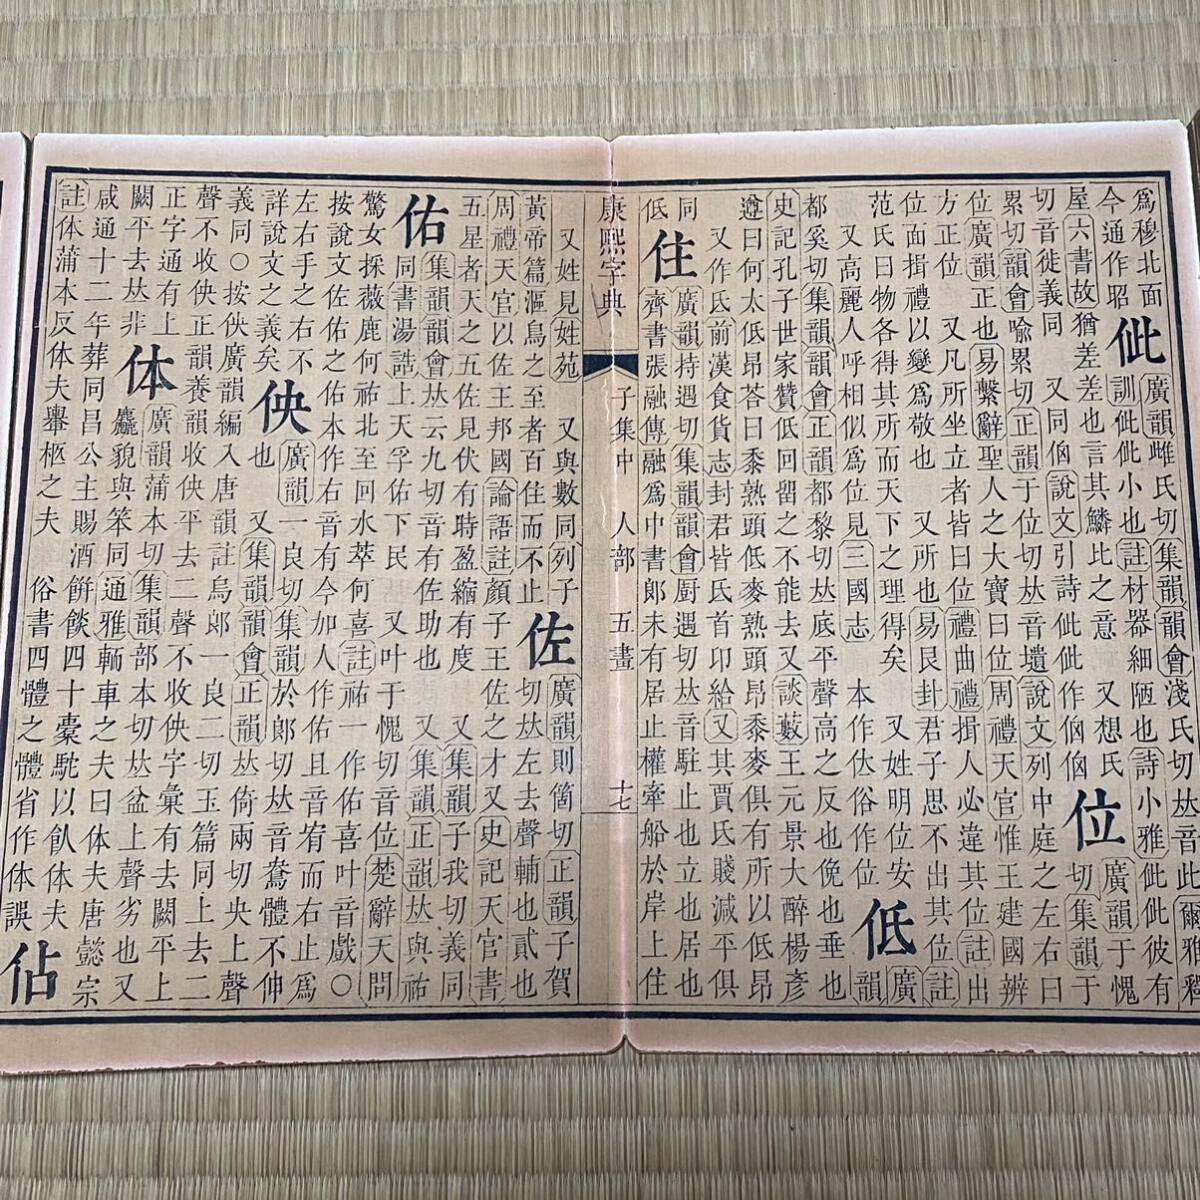 爲穆北面
今通作昭
佌
廣韻雌氏切集韻韻會淺氏切𠀤音此爾雅釋
訓佌佌小也註材器細陋也詩小雅佌佌彼有
屋六書故猶差差也言其鱗比之意 又想氏
切音徙義同 又同㑋說文引詩佌佌作㑋㑋
位
廣韻于愧
切集韻于
累切韻會喩累切正韻于位切𠀤音壝說文列中庭之左右曰
位廣韻正也易繫辭聖人之大寶曰位周禮天官惟王建國辨
方正位 又凡所坐立者皆曰位禮曲禮揖人必違其位註出
位而揖禮以變爲敬也 又所也易艮卦君子思不出其位註
范氏曰物各得其所而天下之理得矣 又姓明位安
又高麗人呼相似爲位見三國志 本作㑀俗作位
低
廣
韻
都奚切集韻韻會正韻都黎切𠀤底平聲高之反也俛也垂也
史記孔子世家贊低回留之不能去又談藪王元景大醉楊彥
遵曰何太低昂荅曰黍熟頭低麥熟頭昂黍麥俱有所以低昂
又作氐前漢食貨志封君皆氐首卬給又其賈氏賤減平俱
同
低
住
廣韻持遇切集韻韻會厨遇切𠀤音駐止也立也居也
齊書張融傳融爲中書郎未有居止權牽船於岸上住
康熙字典 子集中 人部 五畫 十七
又姓見姓苑 又與數同列子
黃帝篇漚鳥之至者百住而不止
佐
廣韻則箇切正韻子賀
切𠀤左去聲輔也貳也
周禮天官以佐王邦國論語註顏子王佐之才又史記天官書
五星者天之五佐見伏有時盈縮有度 又集韻子我切義同
佑
集韻韻會𠀤云九切音有佐助也 又集韻正韻𠀤與祐
同書湯誥上天孚佑下民 又叶于愧切音位楚辭天問
驚女採薇鹿何祐北至回水萃何喜註祐一作佑喜叶音戲○
按說文佐佑之佑本作右音有今加人作佑且音宥而右止爲
左右手之右不
詳說文之義矣
佒
廣韻一良切集韻於郎切𠀤音鴦體不伸
也 又集韻韻會正韻𠀤倚兩切央上聲
義同○按佒廣韻編入唐韻註烏郎一良二切玉篇同上去二
聲不收佒正韻養韻收佒平去二聲不收佒字彙有去闕平上
正字通有上
闕平去𠀤非
体
廣韻蒲本切集韻部本切𠀤盆上聲劣也又
麤貌與笨同通雅輀車之夫曰体夫唐懿宗
咸通十二年葬同昌公主賜酒餠餤四十橐駝以飤体夫
註体蒲本反体夫轝柩之夫 俗書四體之體省作体誤
佔